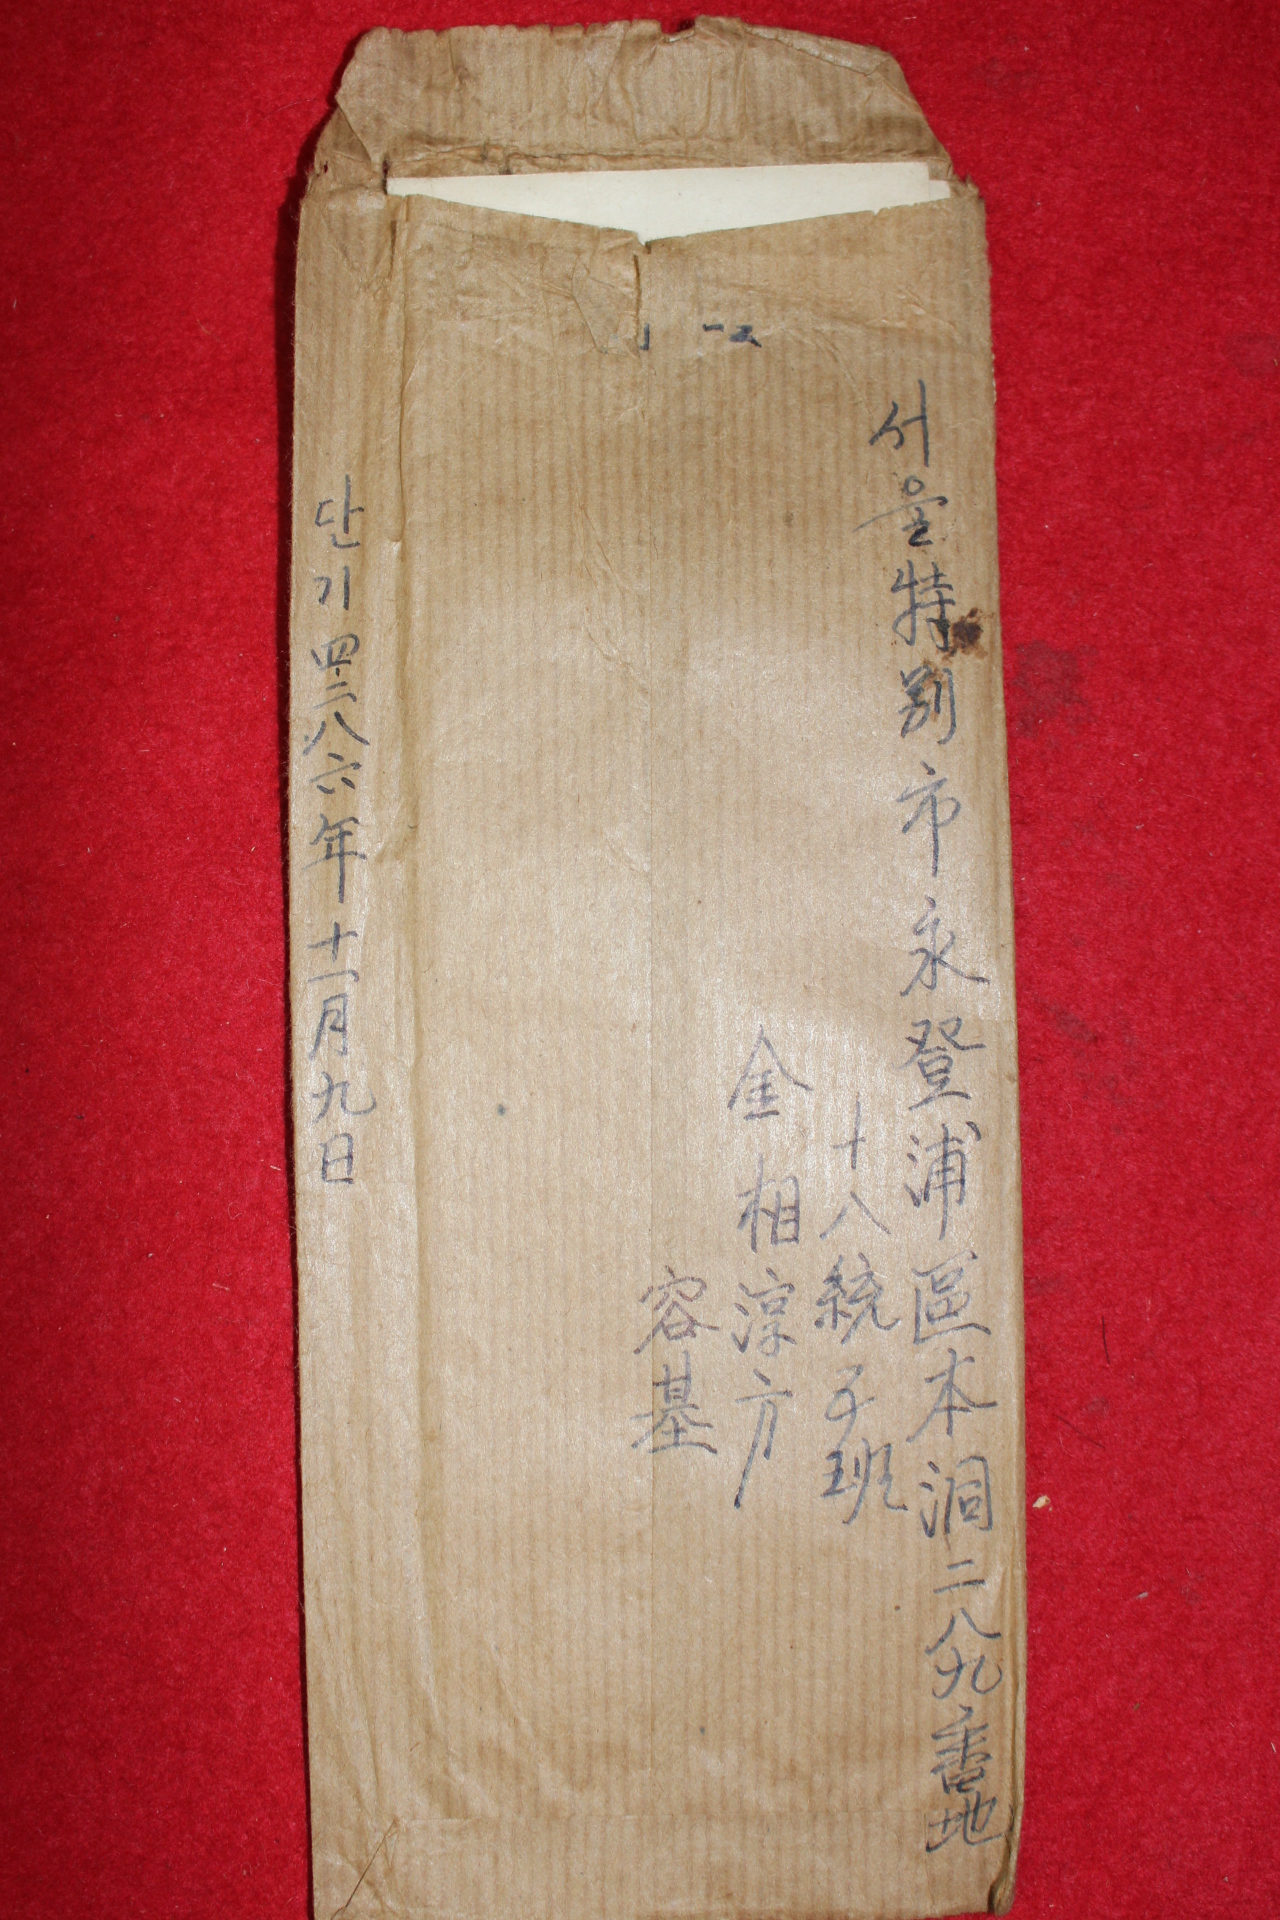 서울特別市永登浦區本洞二八九番地
十八統子班
金相淳方
容基
단기四二八六年十一月九日